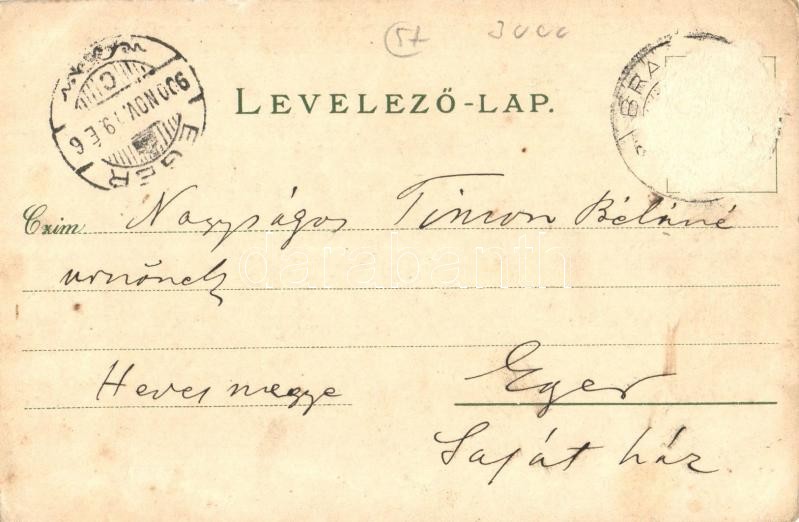 57 3000
900 NOV. 19. E 6
C
EGER
BRA
LEVELEZŐ-LAP.
Czim Nagyságos Timon Béláné
urnőnek
darabanth
Heves megye Eger
Saját ház